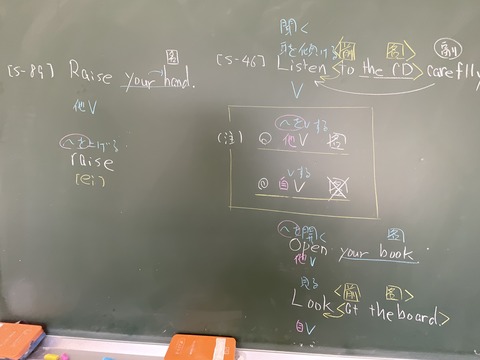 [5-89] Raise your hand.
名
他V
〜を上げる
raise
[ei]
聞く
耳を傾ける 前 名 副
[5-46] Listen <to the CD> careflly
V
(注)
〜をVする
◎ 他V 名
Vする
◎ 自V 名
〜を開く 名
Open your book.
他V
見る 前 名
Look <at the board>
自V